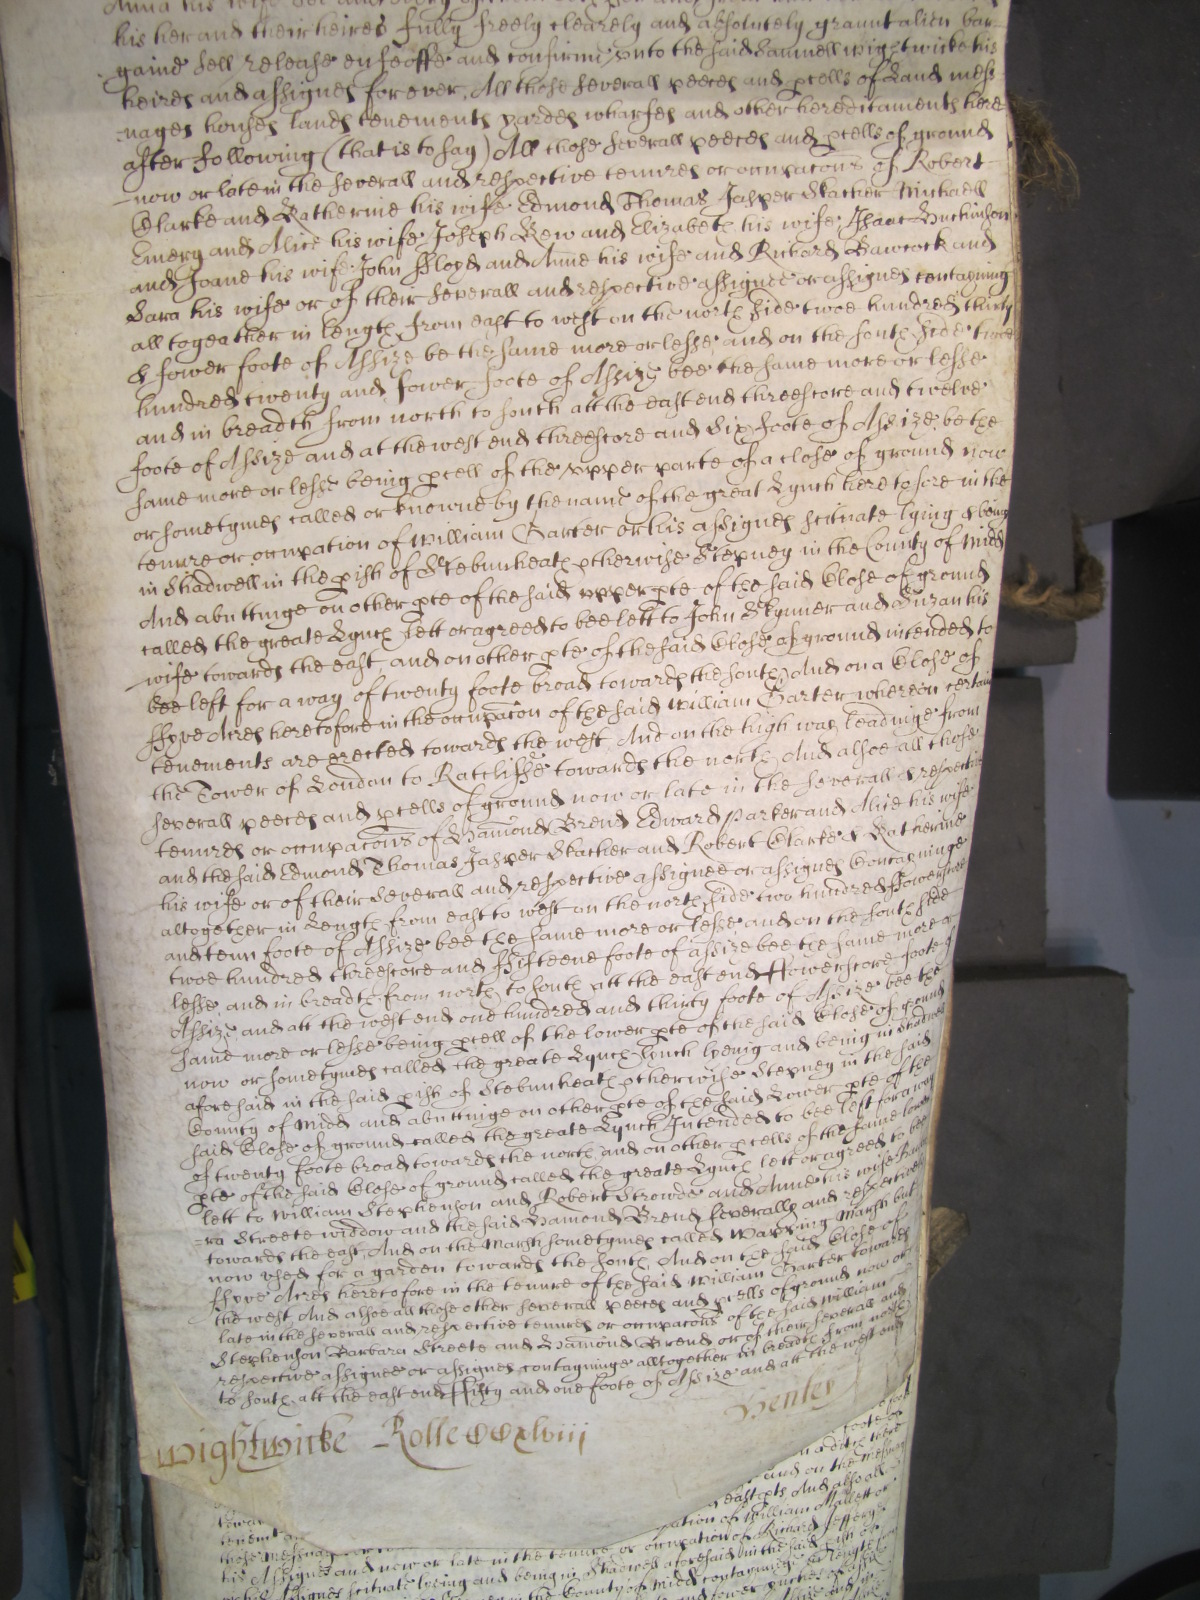 his heir and their heires fully freely clearely and absolutely graunt alien bar-
gaine sell release enfeoffe and confirme vnto the said Samuell Wightwicke his
heires and assignes forever. All those severall peeces and pcells of Land mess-
nages houses lands tenements yardes wharfes and other hereditaments here
after following (that is to say) All those severall peeces and pcells of ground
now or late in the severall and respective tenures or occupacons of Robert
Clarke and Katherine his wife Edmond Thomas Jasper Stacher Michaell
Emery and Alice his wife Joseph Bew and Elizabeth his wife Isaac Huchinson
and Joane his wife John Floyd and Anne his wife and Richard Bawcock and
Sara his wife or of their severall and respective assignee or assignes contayning
all togeather in length from east to west on the north side twoe hundred thirty
& fower foote of Assize be the same more or lesse and on the south side twoe
hundred twenty and fower foote of Assize bee the same more or lesse
and in breadth from north to south att the east end threescore and twelve
foote of Assize and at the west end threescore and six foote of Assize be the
same more or lesse being pcell of the vpper parte of a close of ground now
or sometymes called or knowne by the name of the great Lynch heretofore in the
tenure or occupation of William Carter or his assignes scituate lying & being
in Shadwell in the pish of Stebunheath otherwise Stepney in the County of Midd
And abuttinge on other pte of the said vpper pte of the said Close of ground
called the greate Lynch lett or agreed to bee lett to John Skynner and Suzan his
wife towards the east, and on other pte of the said Close of ground intended to
bee left for a way of twenty foote broad towards the south And on a Close of
ffyve Acres heretofore in the occupacon of the said William Carter whereon certain
tenements are erected towards the west And on the high way leadinge from
the Tower of London to Ratcliffe towards the north And alsoe all those
severall peeces and pcells of ground now or late in the severall & respective
tenures or occupacons of Hamond Brend Edward Parker and Alice his wife
and the said Edmond Thomas Jasper Stacher and Robert Clarke & Katherine
his wife or of their severall and respective assignee or assignes Contayninge
altogether in Length from east to west on the north side two hundred ffowerscore
and tenn foote of Assize bee the same more or lesse and on the south side
twoe hundred threescore and ffifteene foote of assize bee the same more or
lesse and in breadth from north to south att the east end ffowerscore foote of
Assize and att the west end one hundred and thirty foote of Assize bee the
same more or lesse being pcell of the lower pte of the said Close of ground
now or sometymes called the greate Lynch lynch lyeing and being in Shadwell
aforesaid in the said pish of Stebunheath otherwise Stepney in the said
County of Midd and abuttinge on other pte of the said Lower pte of the
said Close of ground called the greate Lynch Intended to bee left for a way
of twenty foote broad towards the north and on other pcells of the same lower
pte of the said Close of ground called the greate Lynch lett or agreed to bee
lett to William Stephenson and Robert Strowde and Anne his wife Barba
-ra Streete widdow and the said Hamond Brend severally and respectively
towards the east, And on the Marsh sometymes called Wapping Marsh but
now vsed for a garden towards the south And on the said Close of
ffyve Acres heretofore in the tenure of the said William Carter towards
the west And alsoe all those other severall peeces and pcells of ground now or
late in the severall and respective tenures or occupacons of the said William
Stephenson Barbara Streete and Hamond Brend or of their severall and
respective assignee or assignes contayninge alltogether in breadth from north
to south att the east end ffifty and one foote of Assize and att the west end
Wightwicke Rolle ccxlviii Henley
and on the Messuag
east pts And also all
pation of William Mallett or
his Assignes and now or late in the tenure or occupation of Richard Jefferys
Assignes scituate lyeing and being in Shadwell aforesaid in the said
in the County of Midd contayninge in length